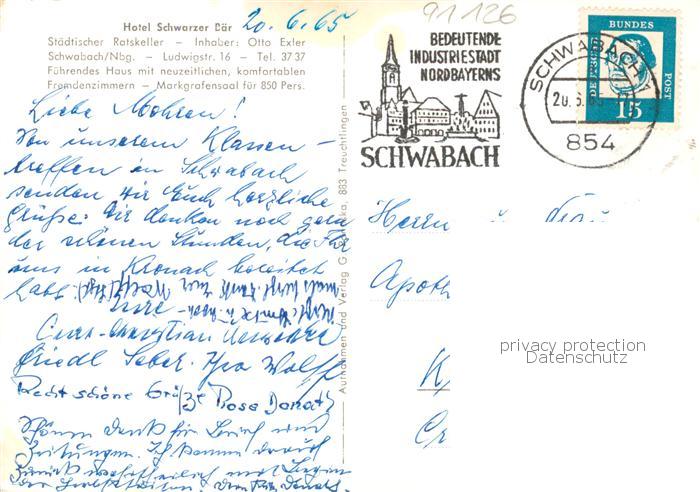 91126
Hotel Schwarzer Bär 20.6.65
Städtischer Ratskeller - Inhaber: Otto Exler
Schwabach/Nbg. - Ludwigstr. 16 - Tel. 3737
Führendes Haus mit neuzeitlichen, komfortablen
Fremdenzimmern - Markgrafensaal für 850 Pers.
BEDEUTENDE
INDUSTRIESTADT
NORDBAYERNS
SCHWABACH
SCHWABACH 1
20.6.65
854
DEUTSCHE
BUNDES
POST
15
Liebe Mohren!
Von unserem Klassen-
treffen in Schwabach
senden wir Euch herzliche
Grüße. Wir denken noch gern
der schönen Stunden, die Ihr
uns in Kronach bereitet
habt.
Eure
Friedl Wolff
Recht schöne Grüße Rosa Donath
Schönen Dank für Brief und
Zeitungen. Ich komme darauf
zurück
Aufnahmen und Verlag 883 Treuchtlingen
Herrn u. Frau
Apoth
K
Cr
privacy protection
Datenschutz